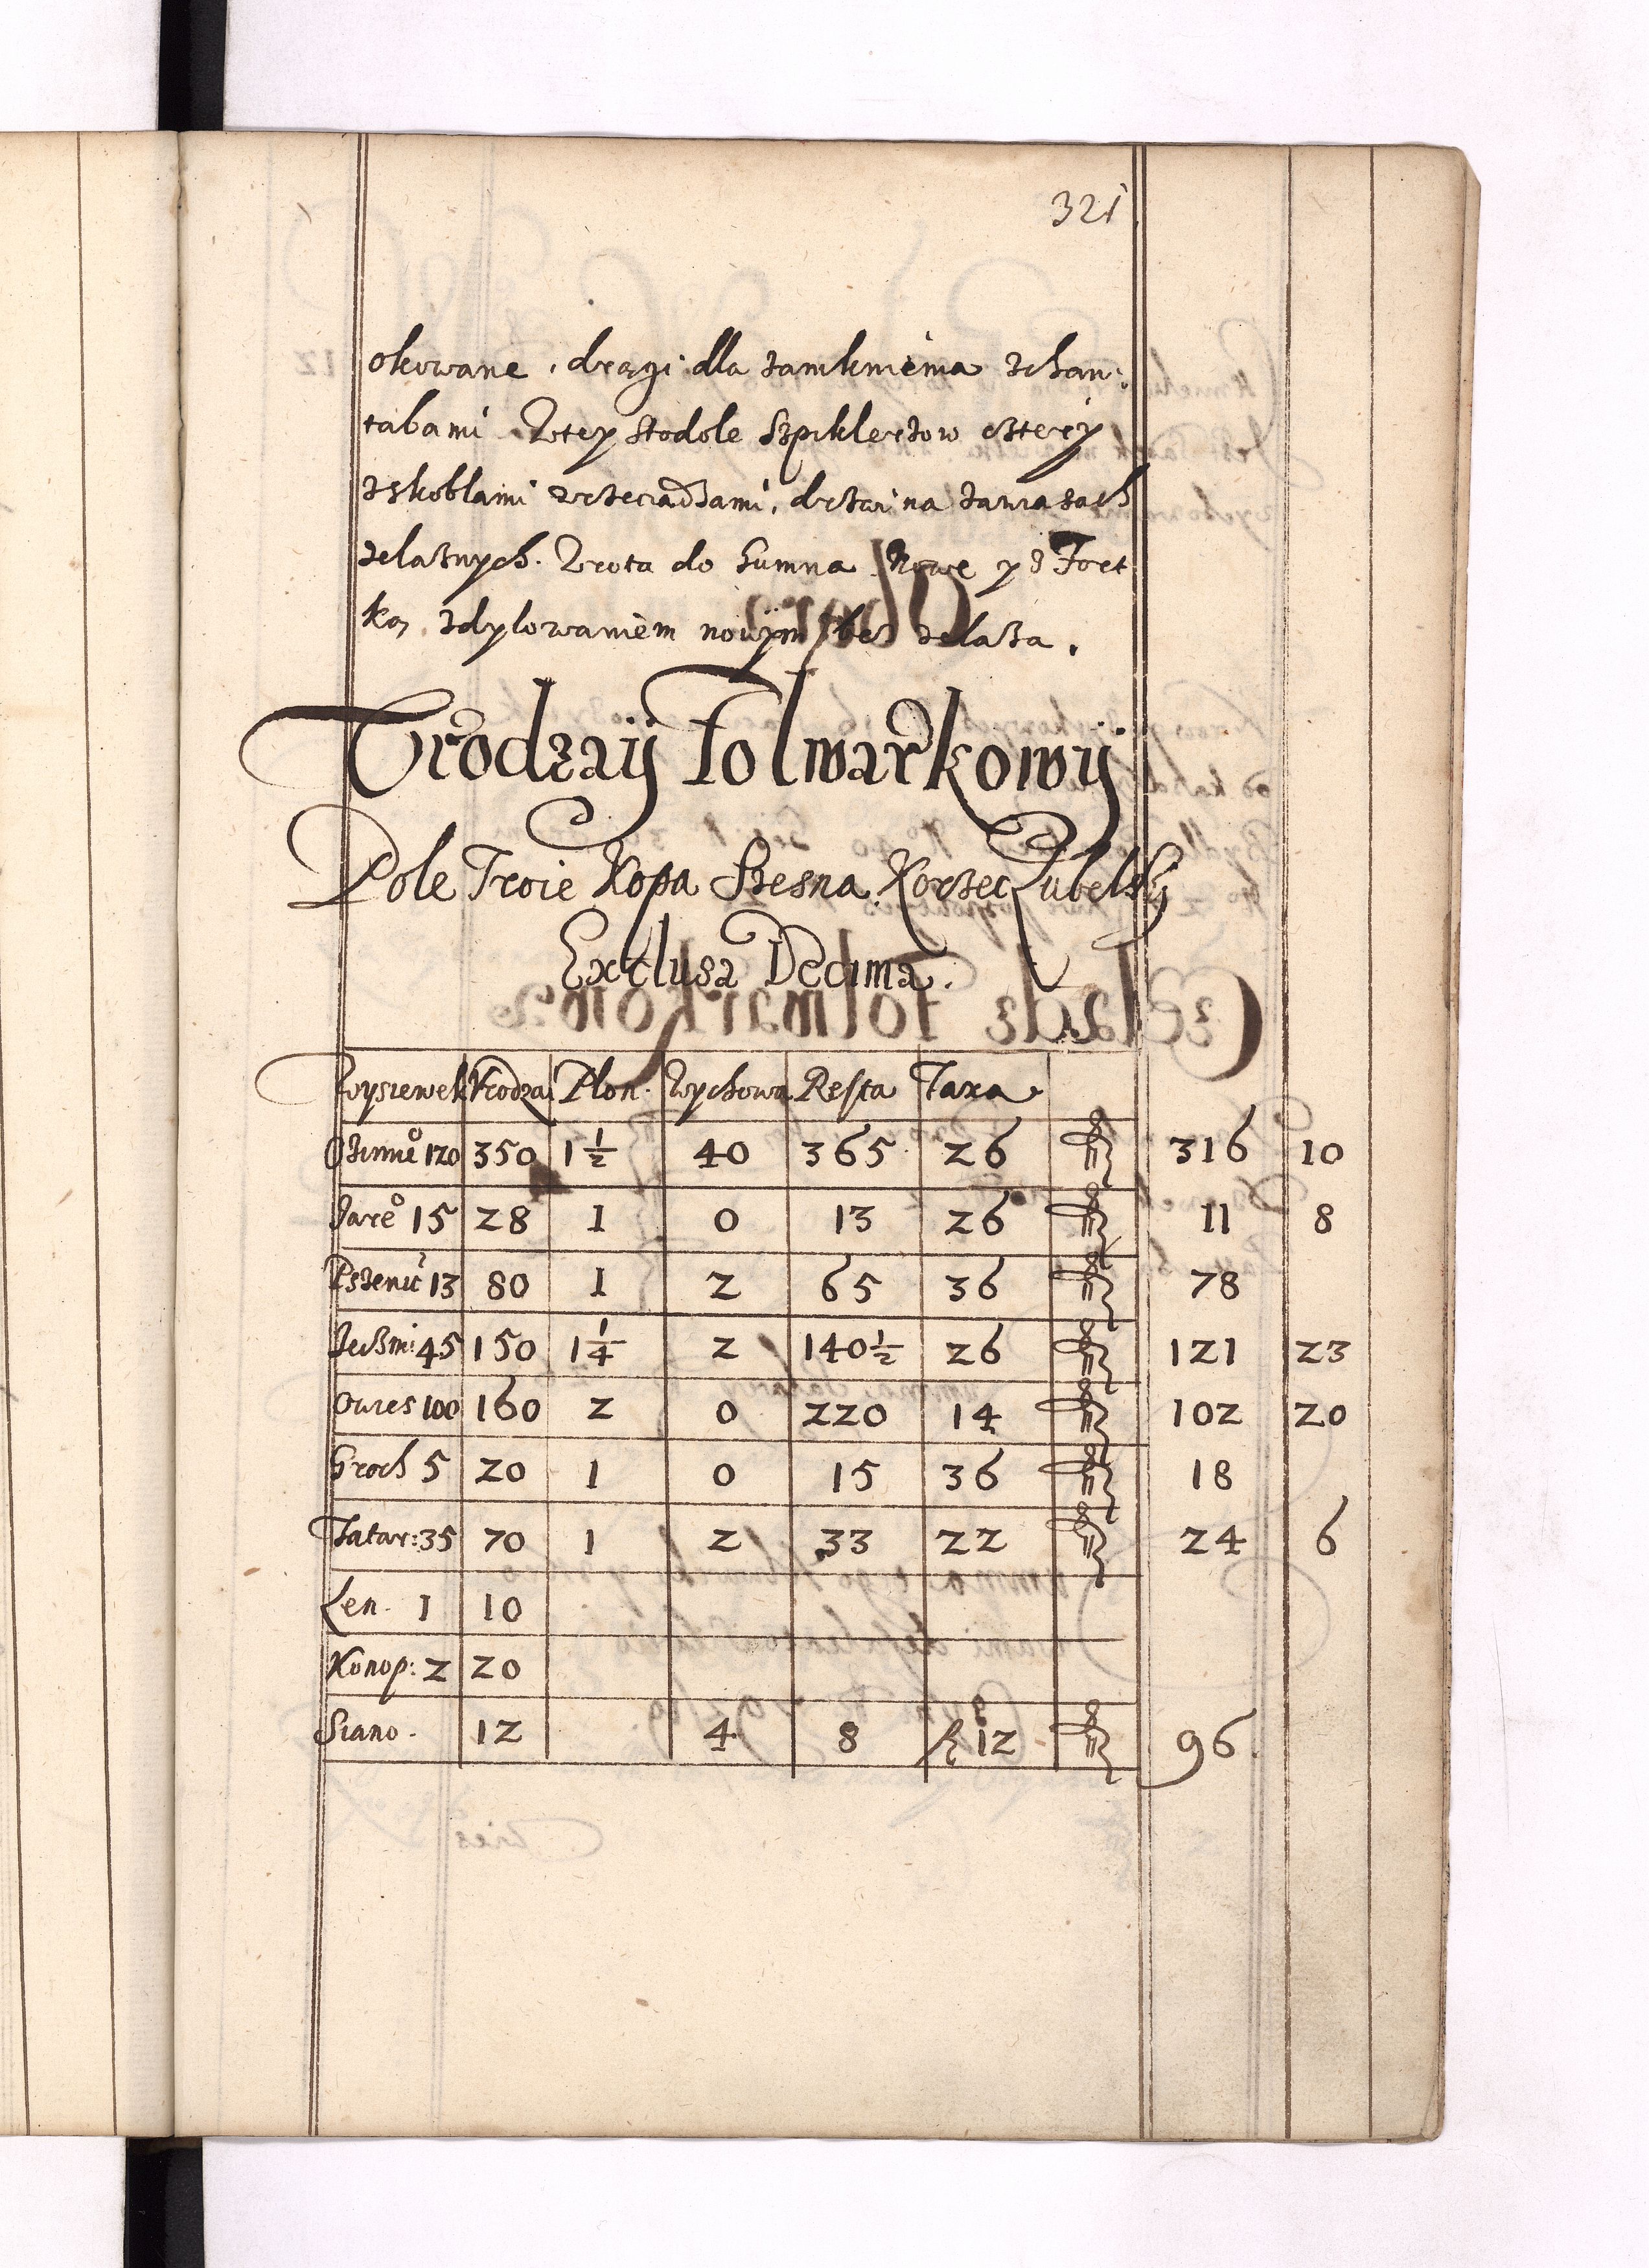 321
okowane, drągi dla zamknięnia z han:
tabami. W tey stodole szpiklerzow cztery
z skoblami wrzeciądzami, drzwi na zawiasach
zelaznych. Wrota do Gumna Nowe y Fort
ka, z dylowaniem nowym bez zelaza.
Vrodzay Folwarkowy
Pole Troie Kopa Szesna. Korzec Lubelsky
Exclusa Decima.
Wysiewek Vrodzai Plon. Wychowa Resta Taxa
Ozimne 120 350 1½ 40 365 26 316 10
Jare 15 28 1 0 13 26 11 8
Pszenic 13 80 1 2 65 36 78
Jeczmi: 45 150 1¼ 2 140½ 26 121 23
Owies 100 160 2 0 220 14 102 20
Groch 5 20 1 0 15 36 18
Tatar: 35 70 1 2 33 22 24 6
Len. 1 10
Konop: 2 20
Siano. 12 4 8 12 96.